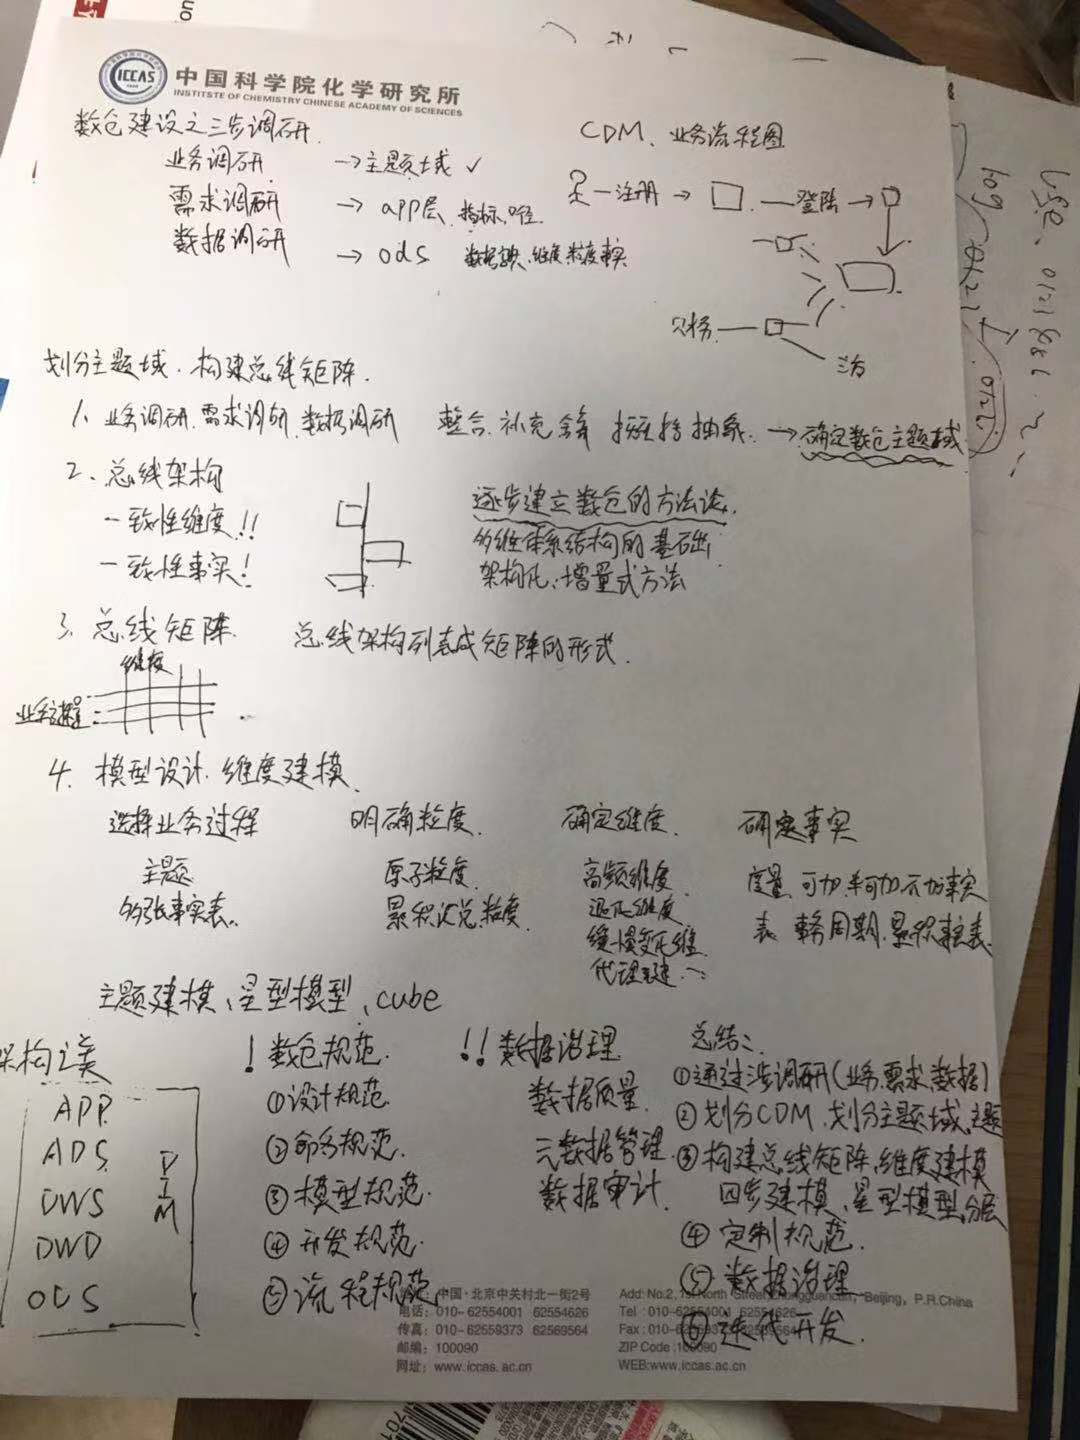 ICCAS
中国科学院化学研究所
INSTITSTE OF CHEMISTRY CHINESE ACADEMY OF SCIENCES
数仓建设之三步调研.
业务调研 →主题域 ✓
需求调研 → app层 指标、口径.
数据调研 → ods 维度 粒度 事实
CDM、业务流程图
注册 → 登陆 →
划分主题域.构建总线矩阵.
1、业务调研.需求调研.数据调研 整合、补充 抽象. →确定数仓主题域
2、总线架构
一致性维度!!
一致性事实!
逐步建立数仓的方法论.
多维体系结构的基础出
架构化、增量式方法
3、总线矩阵. 总线架构列表成矩阵的形式.
维度
业务过程
4、模型设计.维度建模.
选择业务过程 明确粒度. 确定维度. 确定事实
主题 原子粒度. 高频维度. 度量.可加.半可加.不可加事实
多张事实表. 累积汇总粒度. 退化维度. 表 事务.周期.累积事实表.
缓慢变化维
代理键
主题建模、星型模型、cube
架构之美
APP
ADS
DWS
DWD
ODS
DIM
! 数仓规范.
①设计规范
②命名规范.
③模型规范.
④开发规范.
⑤流程规范.
!! 数据治理
数据质量
元数据管理
数据审计.
总结:
①通过三步调研(业务.需求.数据)
②划分CDM.划分主题域.主题
③构建总线矩阵.维度建模
四步建模、星型模型.分层
④定制规范.
⑤数据治理
⑥迭代开发.
中国·北京中关村北一街2号
电话: 010- 62554001 62554626
传真: 010- 62559373 62569564
邮编: 100090
网址: www.iccas.ac.cn
Add: No.2, 1st North Street Zhongguancun, Beijing, P.R.China
Tel : 010-62554001 62554626
Fax : 010-62559373 62569564
ZIP Code : 100090
WEB:www.iccas.ac.cn